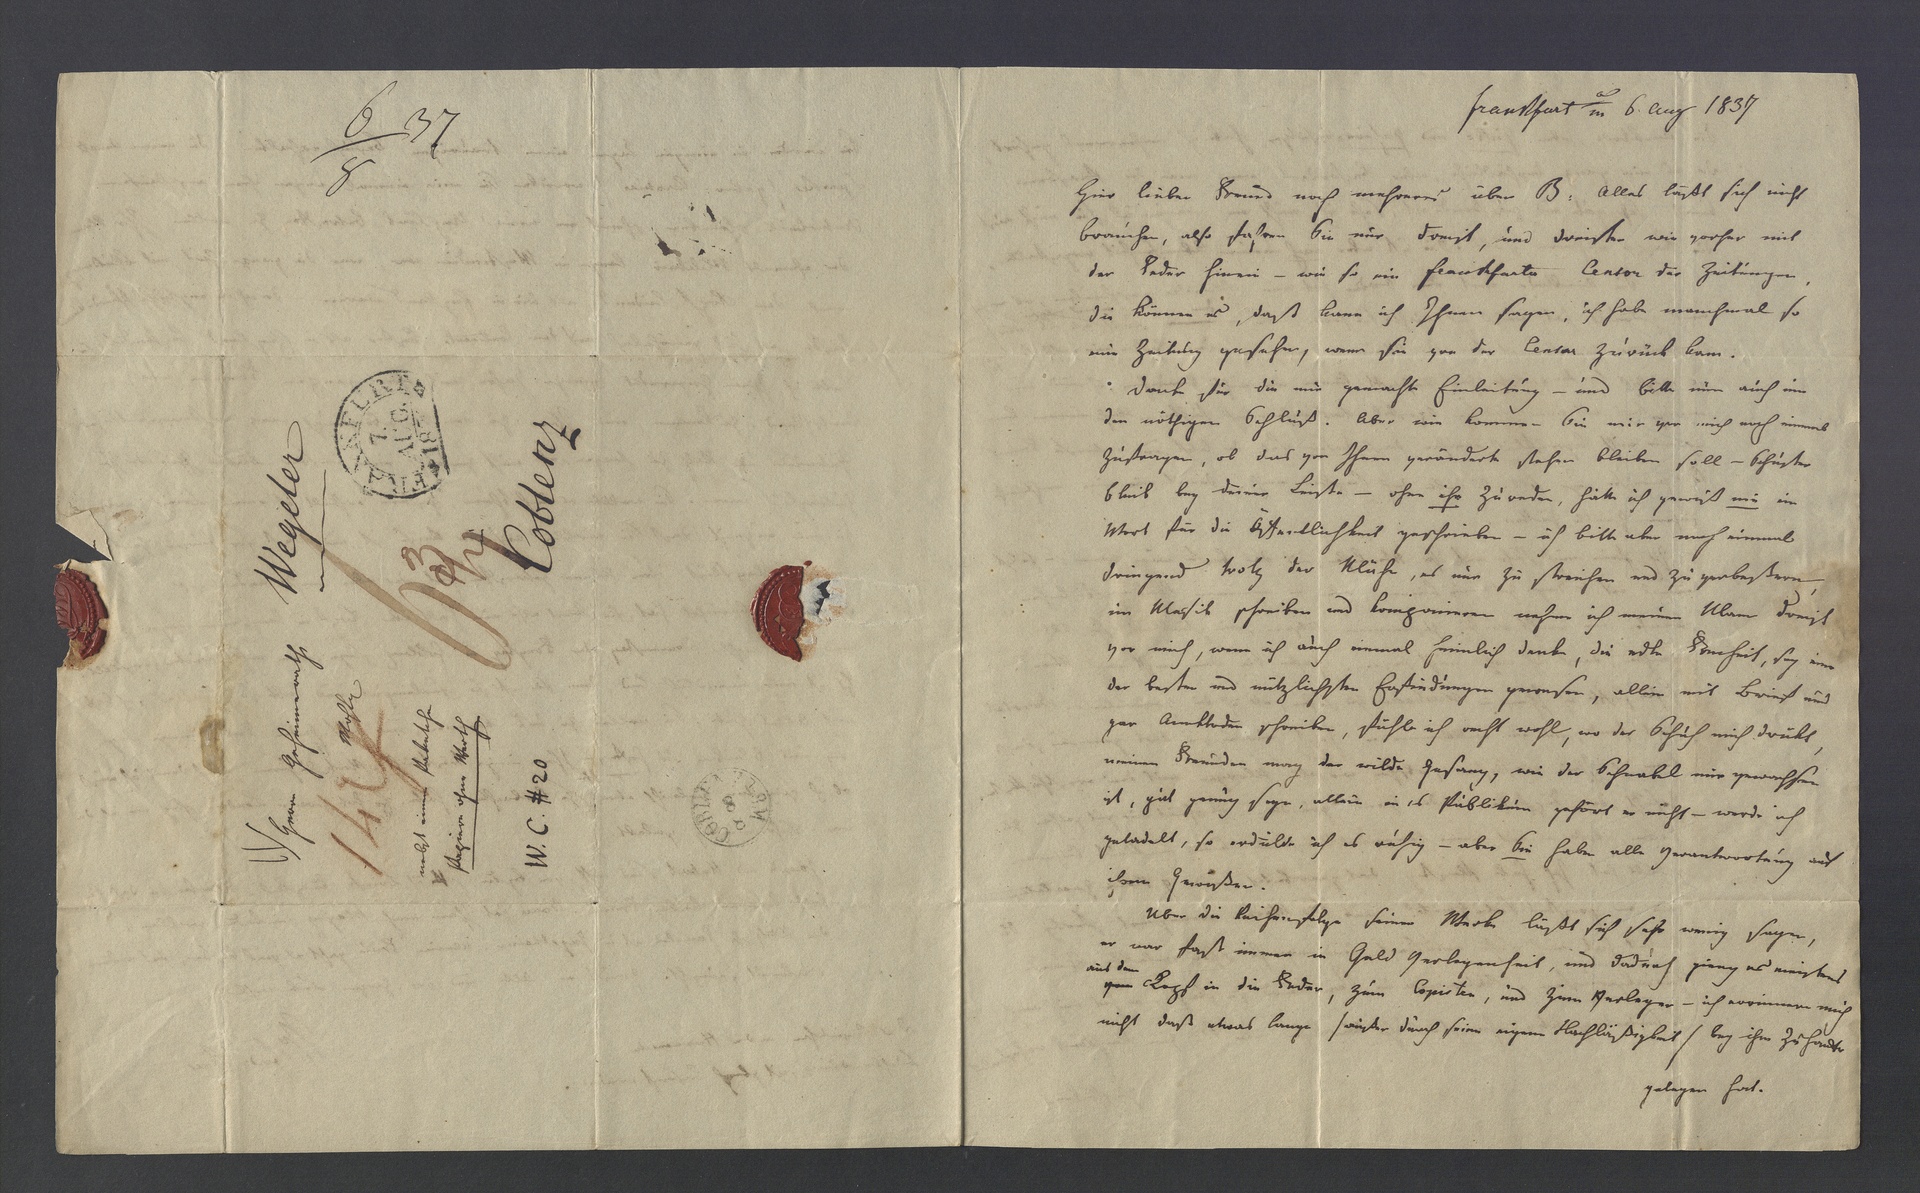 6/8 37
Herrn Geheimerath Wegeler
Coblenz
nebst einem Paketchen
Papiere ohne Werth
W. C. # 20
14
FRANKFURT
7. AUG. 18
COBLENZ
8 8
Frankfurt a/m 6. aug 1837
Hier lieber Freund noch mehreres über B: Alles läßt sich nicht
brauchen, also fahren Sie nur dreist, und dreister wie vorher mit
der Feder hinein – wie so ein frankfurter Censor der Zeitungen,
die können es, daß kann ich Ihnen sagen, ich habe manchmal so
eine Zeitung gesehen, wenn sie von der Censur zurück kam.
Dank für die mir gemachte Einleitung – und bitte nun auch um
den nöthigen Schluß. Aber wie kommen Sie mir vor mich noch einmal
zu fragen, ob das von Ihnen geänderte stehen bleiben soll – Schuster
bleib bey deiner Leiste – ohne ihr Zureden, hätte ich gewiß nie ein
Wort für die Öffentlichkeit geschrieben – ich bitte aber noch einmal
dringend trotz der Mühe, es nur zu streichen und zu verbeßern,
im Musik schreiben und komponieren nehme ich meinen Mann dreist
vor mich, wenn ich auch einmal heimlich denke, die edle Frechheit, sey eine
der besten und nützlichsten Erfindungen gewesen, allein mit Brief und
gar Anekdoten schreiben, fühle ich recht wohl, wo der Schuh mich drükt,
meinen Freunden mag der wilde Gesang, wie der Schnabel mir gewachsen
ist, gut genug seyn, allein in's Publikum gehört er nicht – werde ich
getadelt, so erdulde ich es ruhig – aber Sie haben alle Verantwortung auf
ihrem Gewißen.
Über die Reihenfolge seiner Werke läßt sich sehr wenig sagen,
er war fast immer in Geld Verlegenheit, und dadurch gieng es meistens
aus dem
vom Kopf in die Feder, zum Copisten, und zum Verleger – ich erinnere mich
nicht daß etwas lange /außer durch seine eigene Nachläßigkeit/ bey ihm zu Hause
gelegen hat.